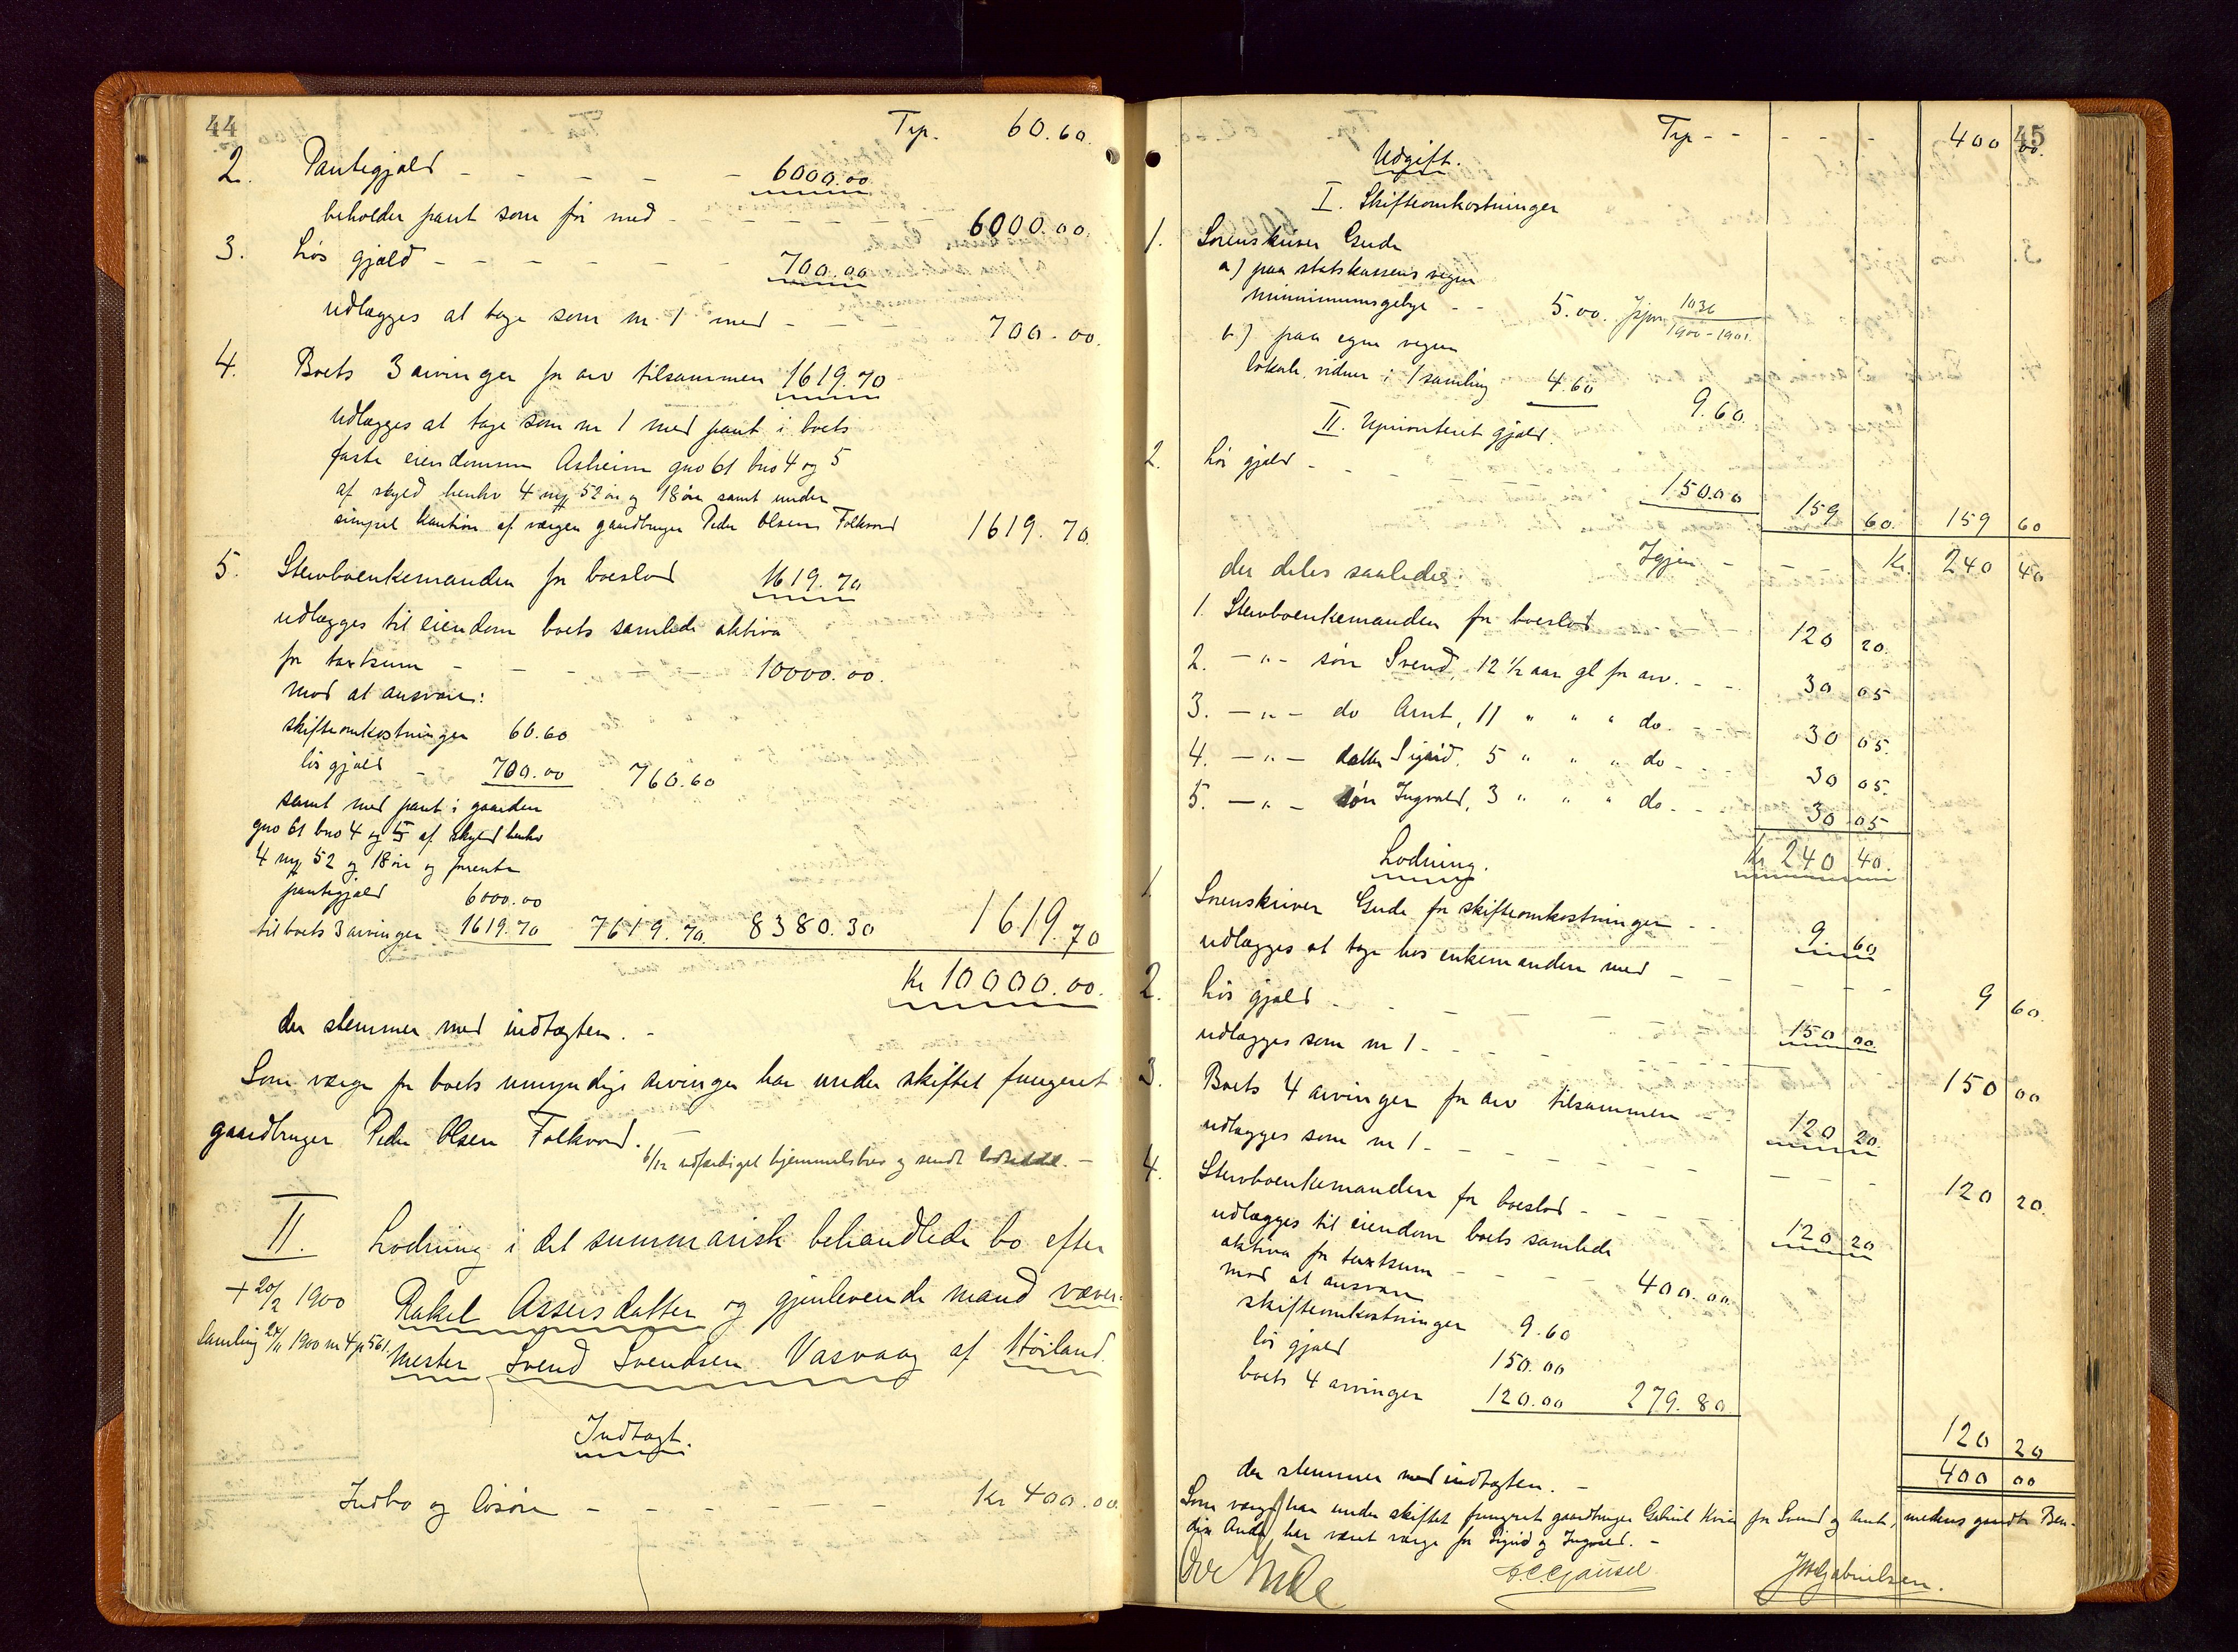 44
Trp. 60.60
2. Pantegjæld - - - - - 6000.00
beholder pant som før med - - - - - 6000.00.
3. Løs gjæld - - - - - 700.00
udlægges at tage som nr 1 med - - - 700.00.
4. Boets 3 arvinger for arv tilsammen 1619.70
udlægges at tage som nr 1 med pant i boets
faste eiendomme Asheim gno 61 bno 4 og 5
af skyld henhv 4 mk 52 øre og 18 øre samt under
simpel kaution af værgen gaardbruger Peder Olsen Folkvord 1619.70.
5. Stervboenkemanden for boeslod 1619.70
udlægges til eiendom boets samlede aktiva
for taxtsum - - - - 10000.00.
mod at ansvare:
skifteomkostninger 60.60
løs gjæld - 700.00 760.60
samt med pant i gaarden
gno 61 bno 4 og 5 af skyld henhv
4 mk 52 og 18 øre og forrente
pantegjæld 6000.00
til boets 3 arvinger 1619.70 7619.70. 8380.30 1619.70
Kr 10000.00.
der stemmer med indtægten. -
Som værge for boets umyndige arvinger har under skiftet fungeret
gaardbruger Peder Olsen Folkvord.
6/12 udfærdiget hjemmelsbrev og sendt
II. Lodning i det summarisk behandlede bo efter
+ 20/2 1900 Rakel Assersdatter og gjenlevende mand væver-
Samling 24/11 1900 nr 4 p 561. mester Svend Svendsen Vasvaag af Høiland.
Indtægt.
Indbo og løsøre - - - - - - Kr 400.00
45
Trp - - - - - 400 00.
Udgift.
I. Skifteomkostninger
1. Sorenskriver Gude
a) paa statskassens vegne
minimumsgebyr - - 5.00. Jpr 1036/1900-1901.
b) paa egne vegne
lokale, vidner i 1 samling 4.60 9.60
II. Uprioriteret gjæld.
2. Løs gjæld - - - 150.00 159 60. 159 60
Igjen - - - Kr. 240 40
der deles saaledes:
1. Stervboenkemanden for boeslod 120 20.
2. -"- søn Svend, 12 1/2 aar gl for arv. - - 30 05
3. -"- do Arnt, 11 " " " do. - - 30 05.
4. -"- datter Sigrid, 5 " " " do - - 30 05.
5. -"- søn Ingvald, 3 " " " do. - - 30 05
Kr 240 40.
Lodning.
1. Sorenskriver Gude for skifteomkostninger - - 9. 60
udlægges at tage hos enkemanden med - - - - - 9 60.
2. Løs gjæld - - - - 150 00.
udlægges som nr 1 - - - - - 150 00
3. Boets 4 arvinger for arv tilsammen - - 120 20.
udlægges som nr 1 - - - - - - - 120 20.
4. Stervboenkemanden for boeslod - - - 120 20
udlægges til eiendom boets samlede
aktiva for taxtsum - - - - 400.00
mod at ansvare
skifteomkostninger 9.60
løs gjæld 150.00
boets 4 arvinger 120.00 279.80
120 20
400 00
der stemmer med indtægten. -
Som værge har under skiftet fungeret gaardbruger Gabriel Kvia for Svend og Arnt, medens gaardbr Ben-
dix Anda har været værge for Sigrid og Ingvald. -
Ove Gude A.C. Gausel J M Gabrielsen.